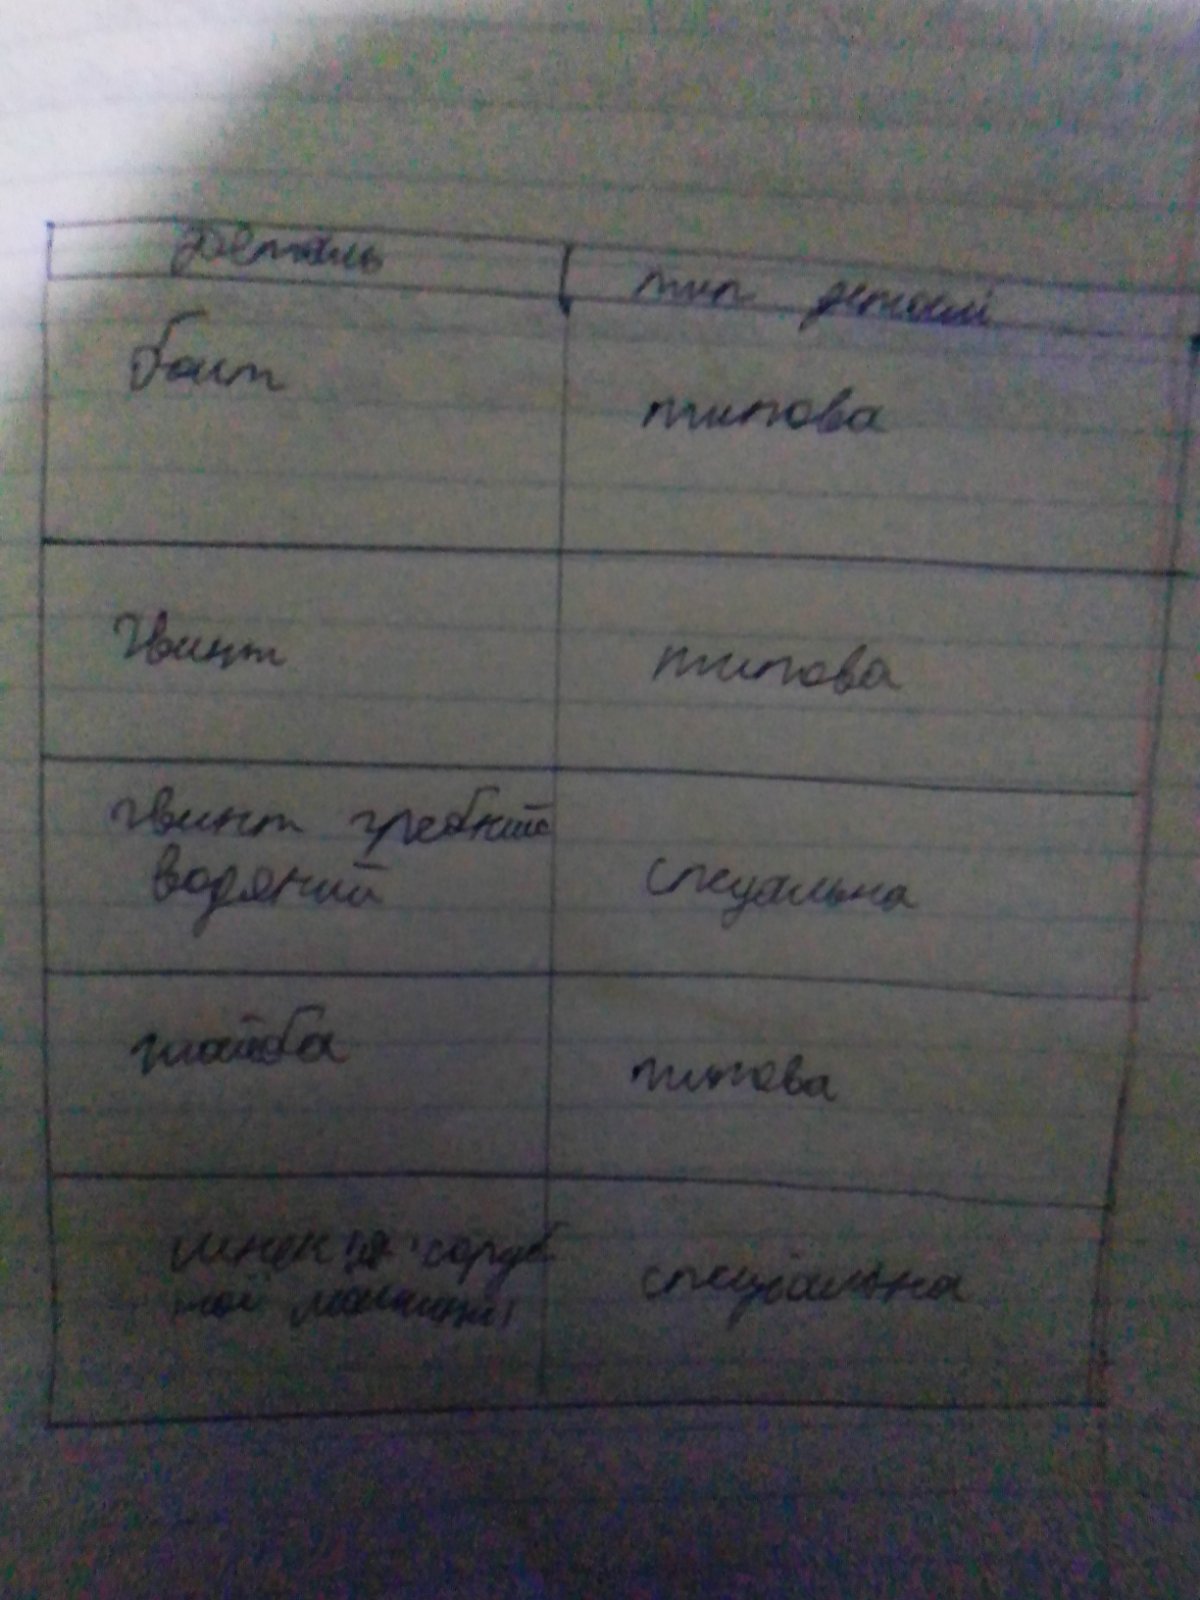 Деталь
тип деталі
болт
типова
гвинт
типова
гвинт гребний
водяний
спеціальна
шайба
типова
шнек
спеціальна